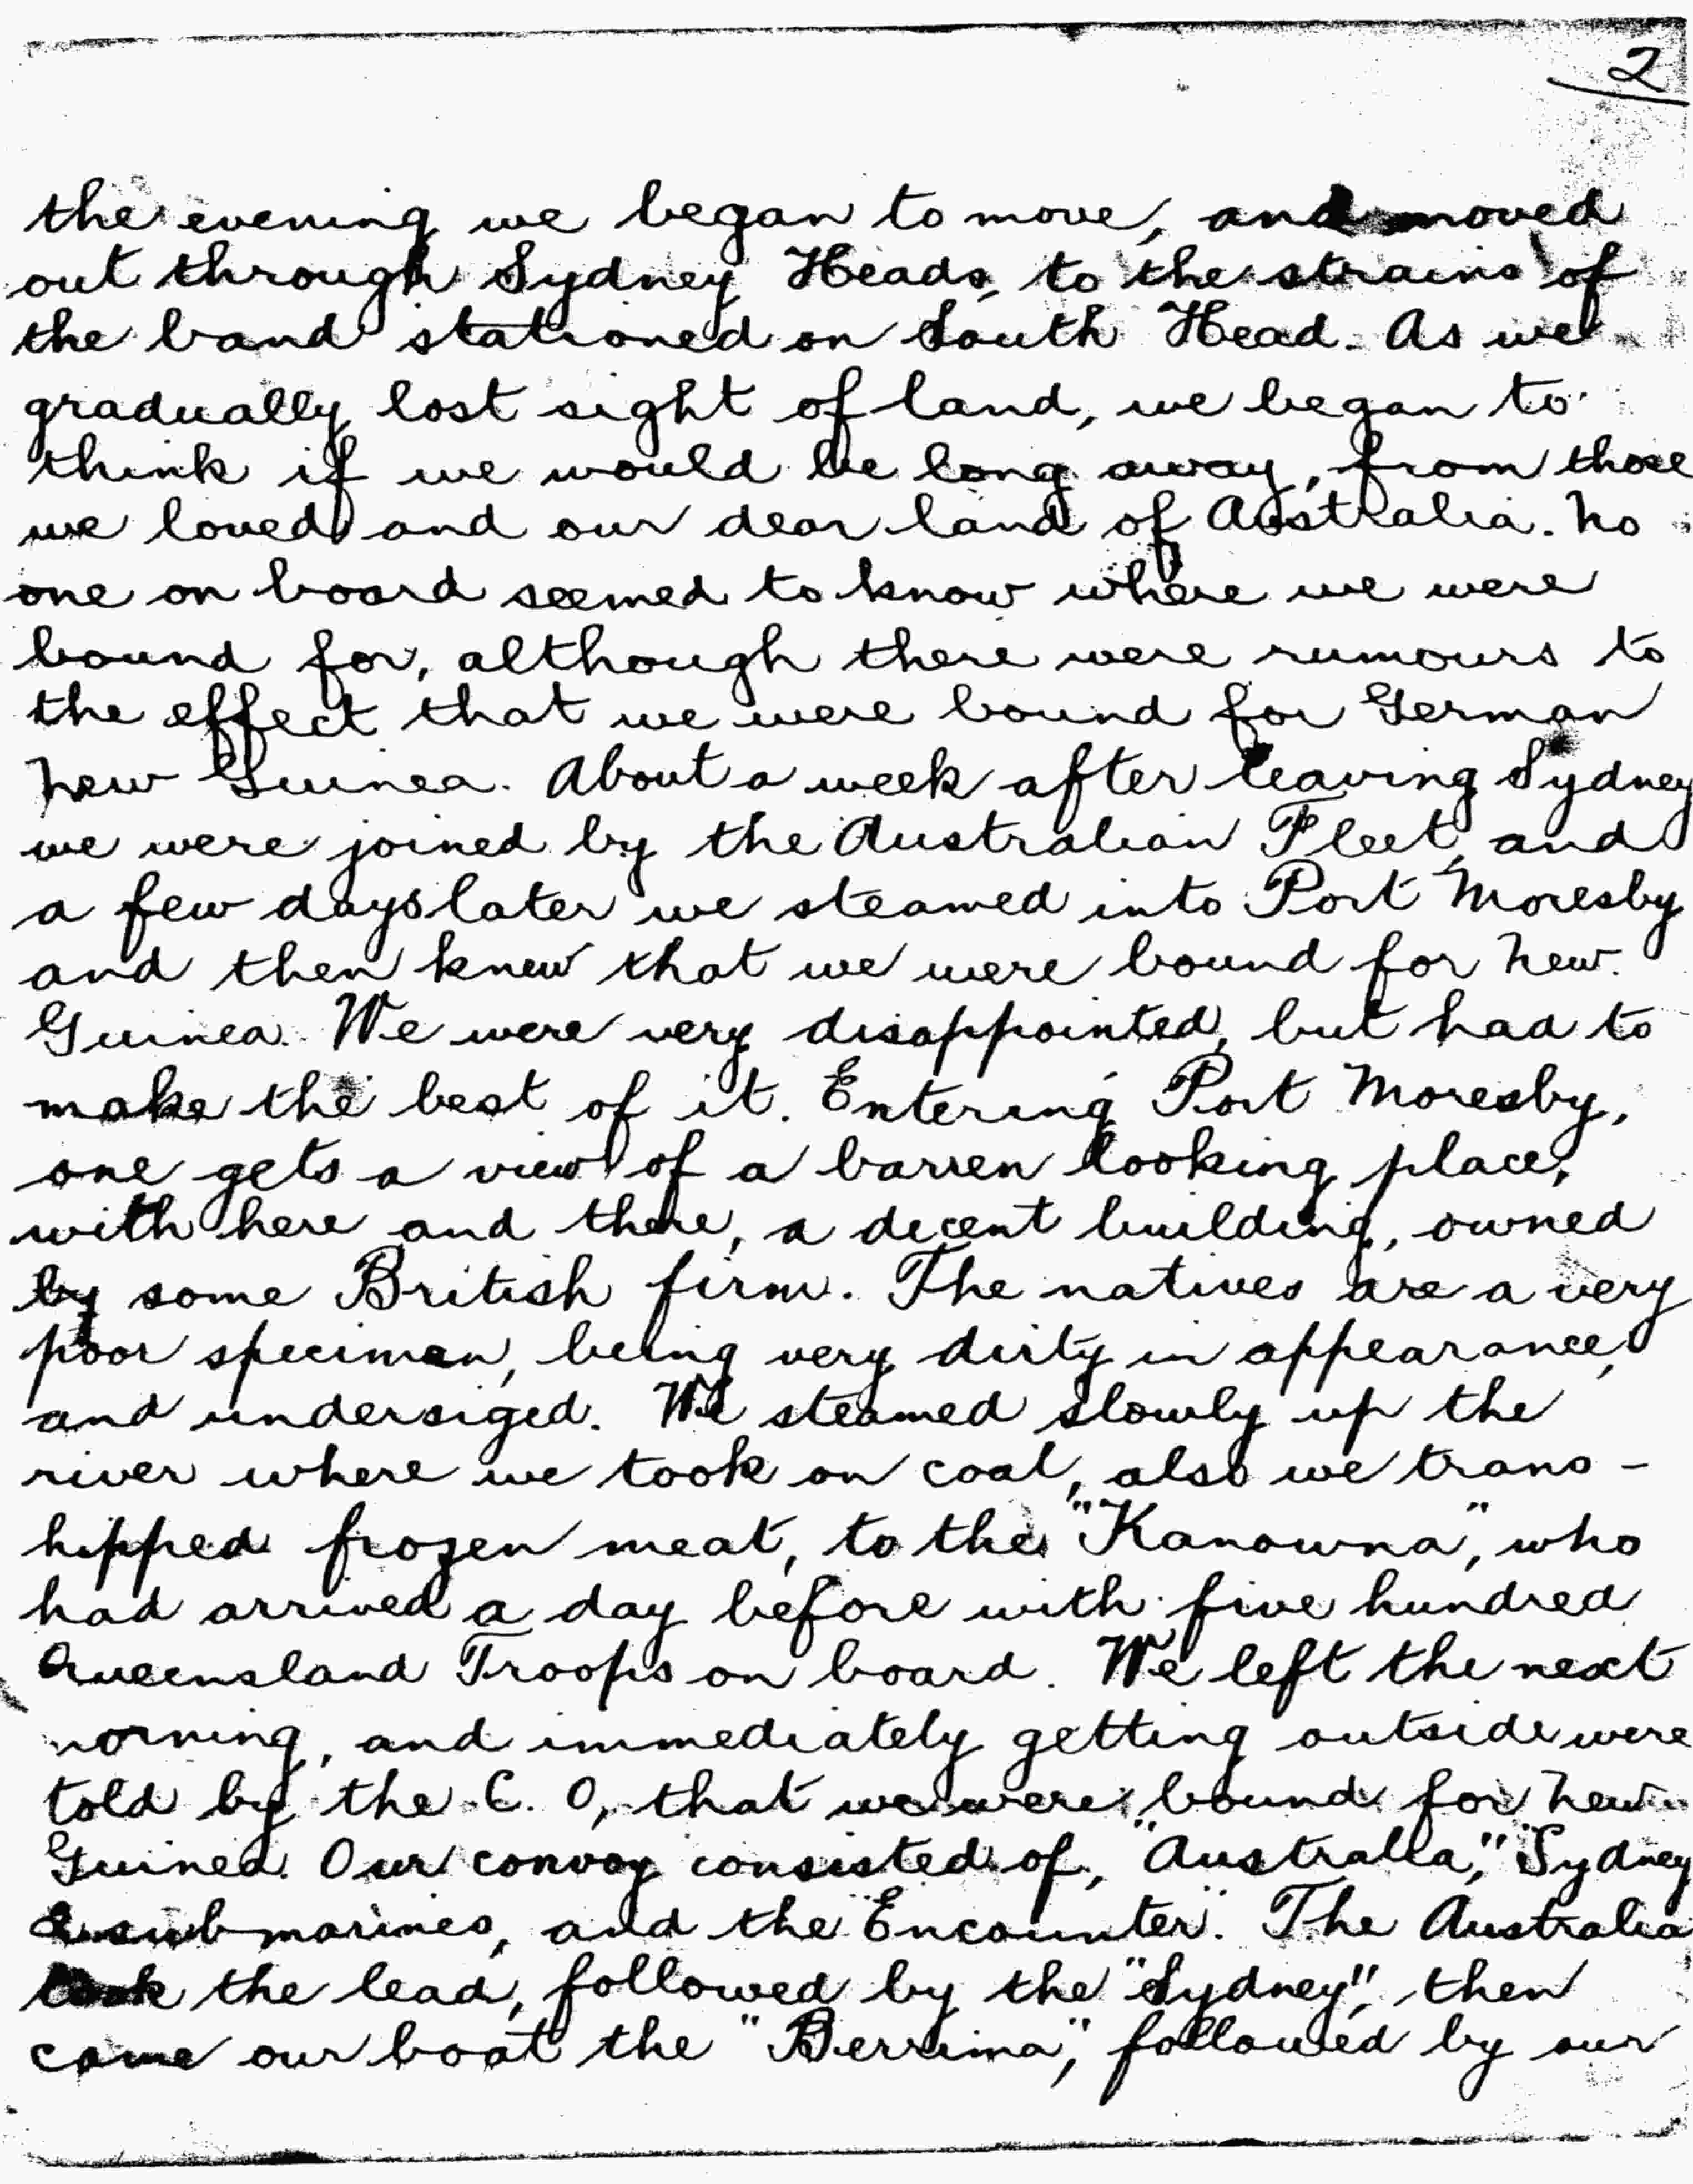 2
the evening we began to move, and moved
out through Sydney Heads, to the strains of
the band stationed on South Head. As we
gradually lost sight of land, we began to
think if we would be long away, from those
we loved and our dear land of Australia. No
one on board seemed to know where we were
bound for, although there were rumours to
the effect that we were bound for German
New Guinea. About a week after leaving Sydney
we were joined by the Australian Fleet, and
a few days later we steamed into Port Moresby
and then knew that we were bound for New
Guinea. We were very disappointed, but had to
make the best of it. Entering Port Moresby,
one gets a view of a barren looking place,
with here and there, a decent building, owned
by some British firm. The natives are a very
poor specimen, being very dirty in appearance,
and undersized. We steamed slowly up the
river where we took on coal, also we trans-
hipped frozen meat, to the "Kanowna", who
had arrived a day before with five hundred
Queensland Troops on board. We left the next
morning, and immediately getting outside were
told by the C. O, that we were bound for New
Guinea. Our convoy consisted of, "Australia," "Sydney
submarines, and the "Encounter". The Australia
took the lead, followed by the "Sydney", then
came our boat the "Berrima", followed by our